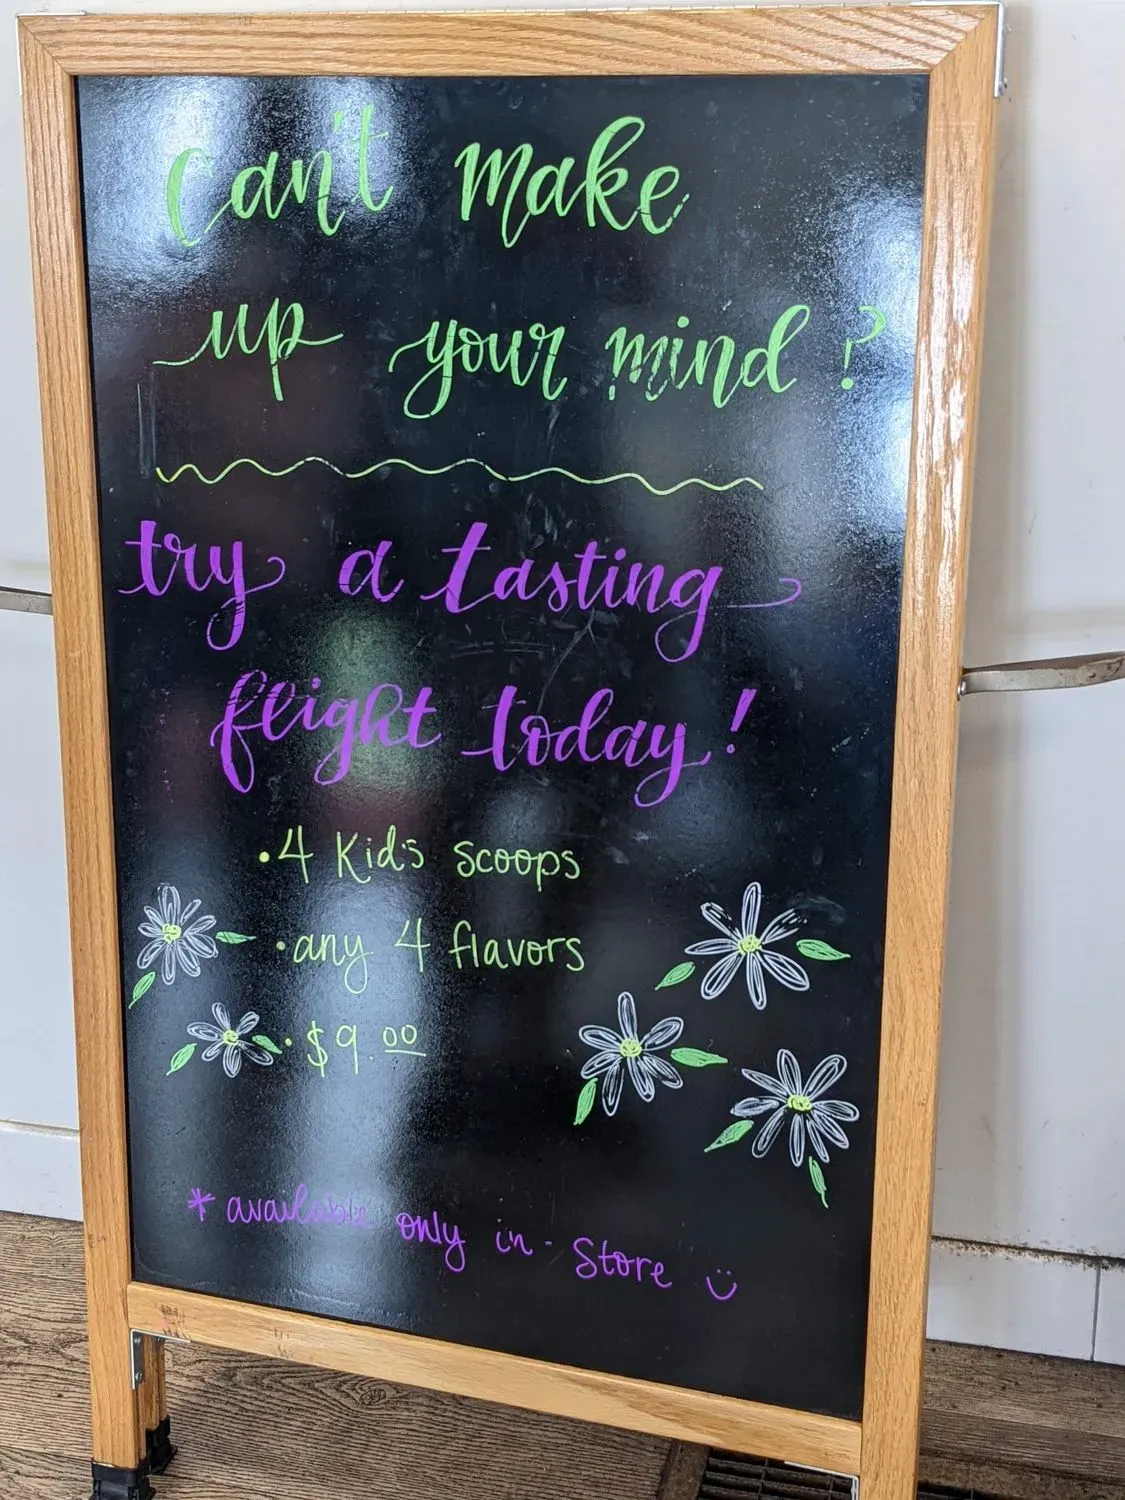 Can't make
up your mind?
try a tasting
flight today!
• 4 Kids scoops
• any 4 flavors
• $9.00
* available only in-store ツ